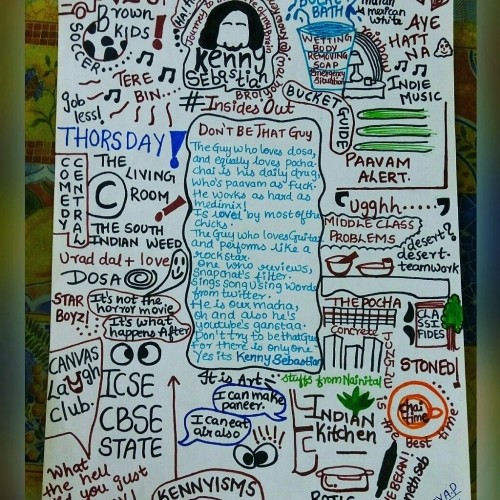 Brown
KIDS!
SOCCER
Kenny
Sebastian
#InsidesOut
BUCKET
BATH
WETTING
BODY
REMOVING
SOAP
Emergency
Situation
mexican
white
AYE
HATT
NA
INDIE
MUSIC
TERE
BIN
Job
less!
THORSDAY!
BUCKET
GUIDE
PAAVAM
ALERT.
COMEDY
CENTRAL
C
THE
LIVING
ROOM
THE SOUTH
INDIAN WEED
Urad dal + love
DOSA
STAR
BOYZ!
It's not the
horror movie
It's what
happens After
DON'T BE THAT GUY
The Guy who loves dosa,
and equally loves pocha.
chai is his daily drug,
who's paavam as fuck.
He works as hard as
medimix!
Is love by most of the
chicks.
The Guy who loves Guitar
and performs like a
rockstar.
one who reviews,
snapchat's filter.
sings song using words
from twitter.
He is our macha,
oh and also he's
youtube's gansta.
Don't try to be that Guy
For there is only one
Yes its Kenny Sebastian
"Ugghh....."
MIDDLE CLASS
PROBLEMS
desert?
desert.
teamwork
THE POCHA
Concrete
CLA
SSI
FIDES
STONED!
CANVAS
Laugh
Club.
ICSE
CBSE
STATE
It is Art
stuffs from Nainital
I can make
paneer.
I can eat
air also
INDIAN
Kitchen
chai
time
is the best time
What
the hell
did you just
KENNYISMS